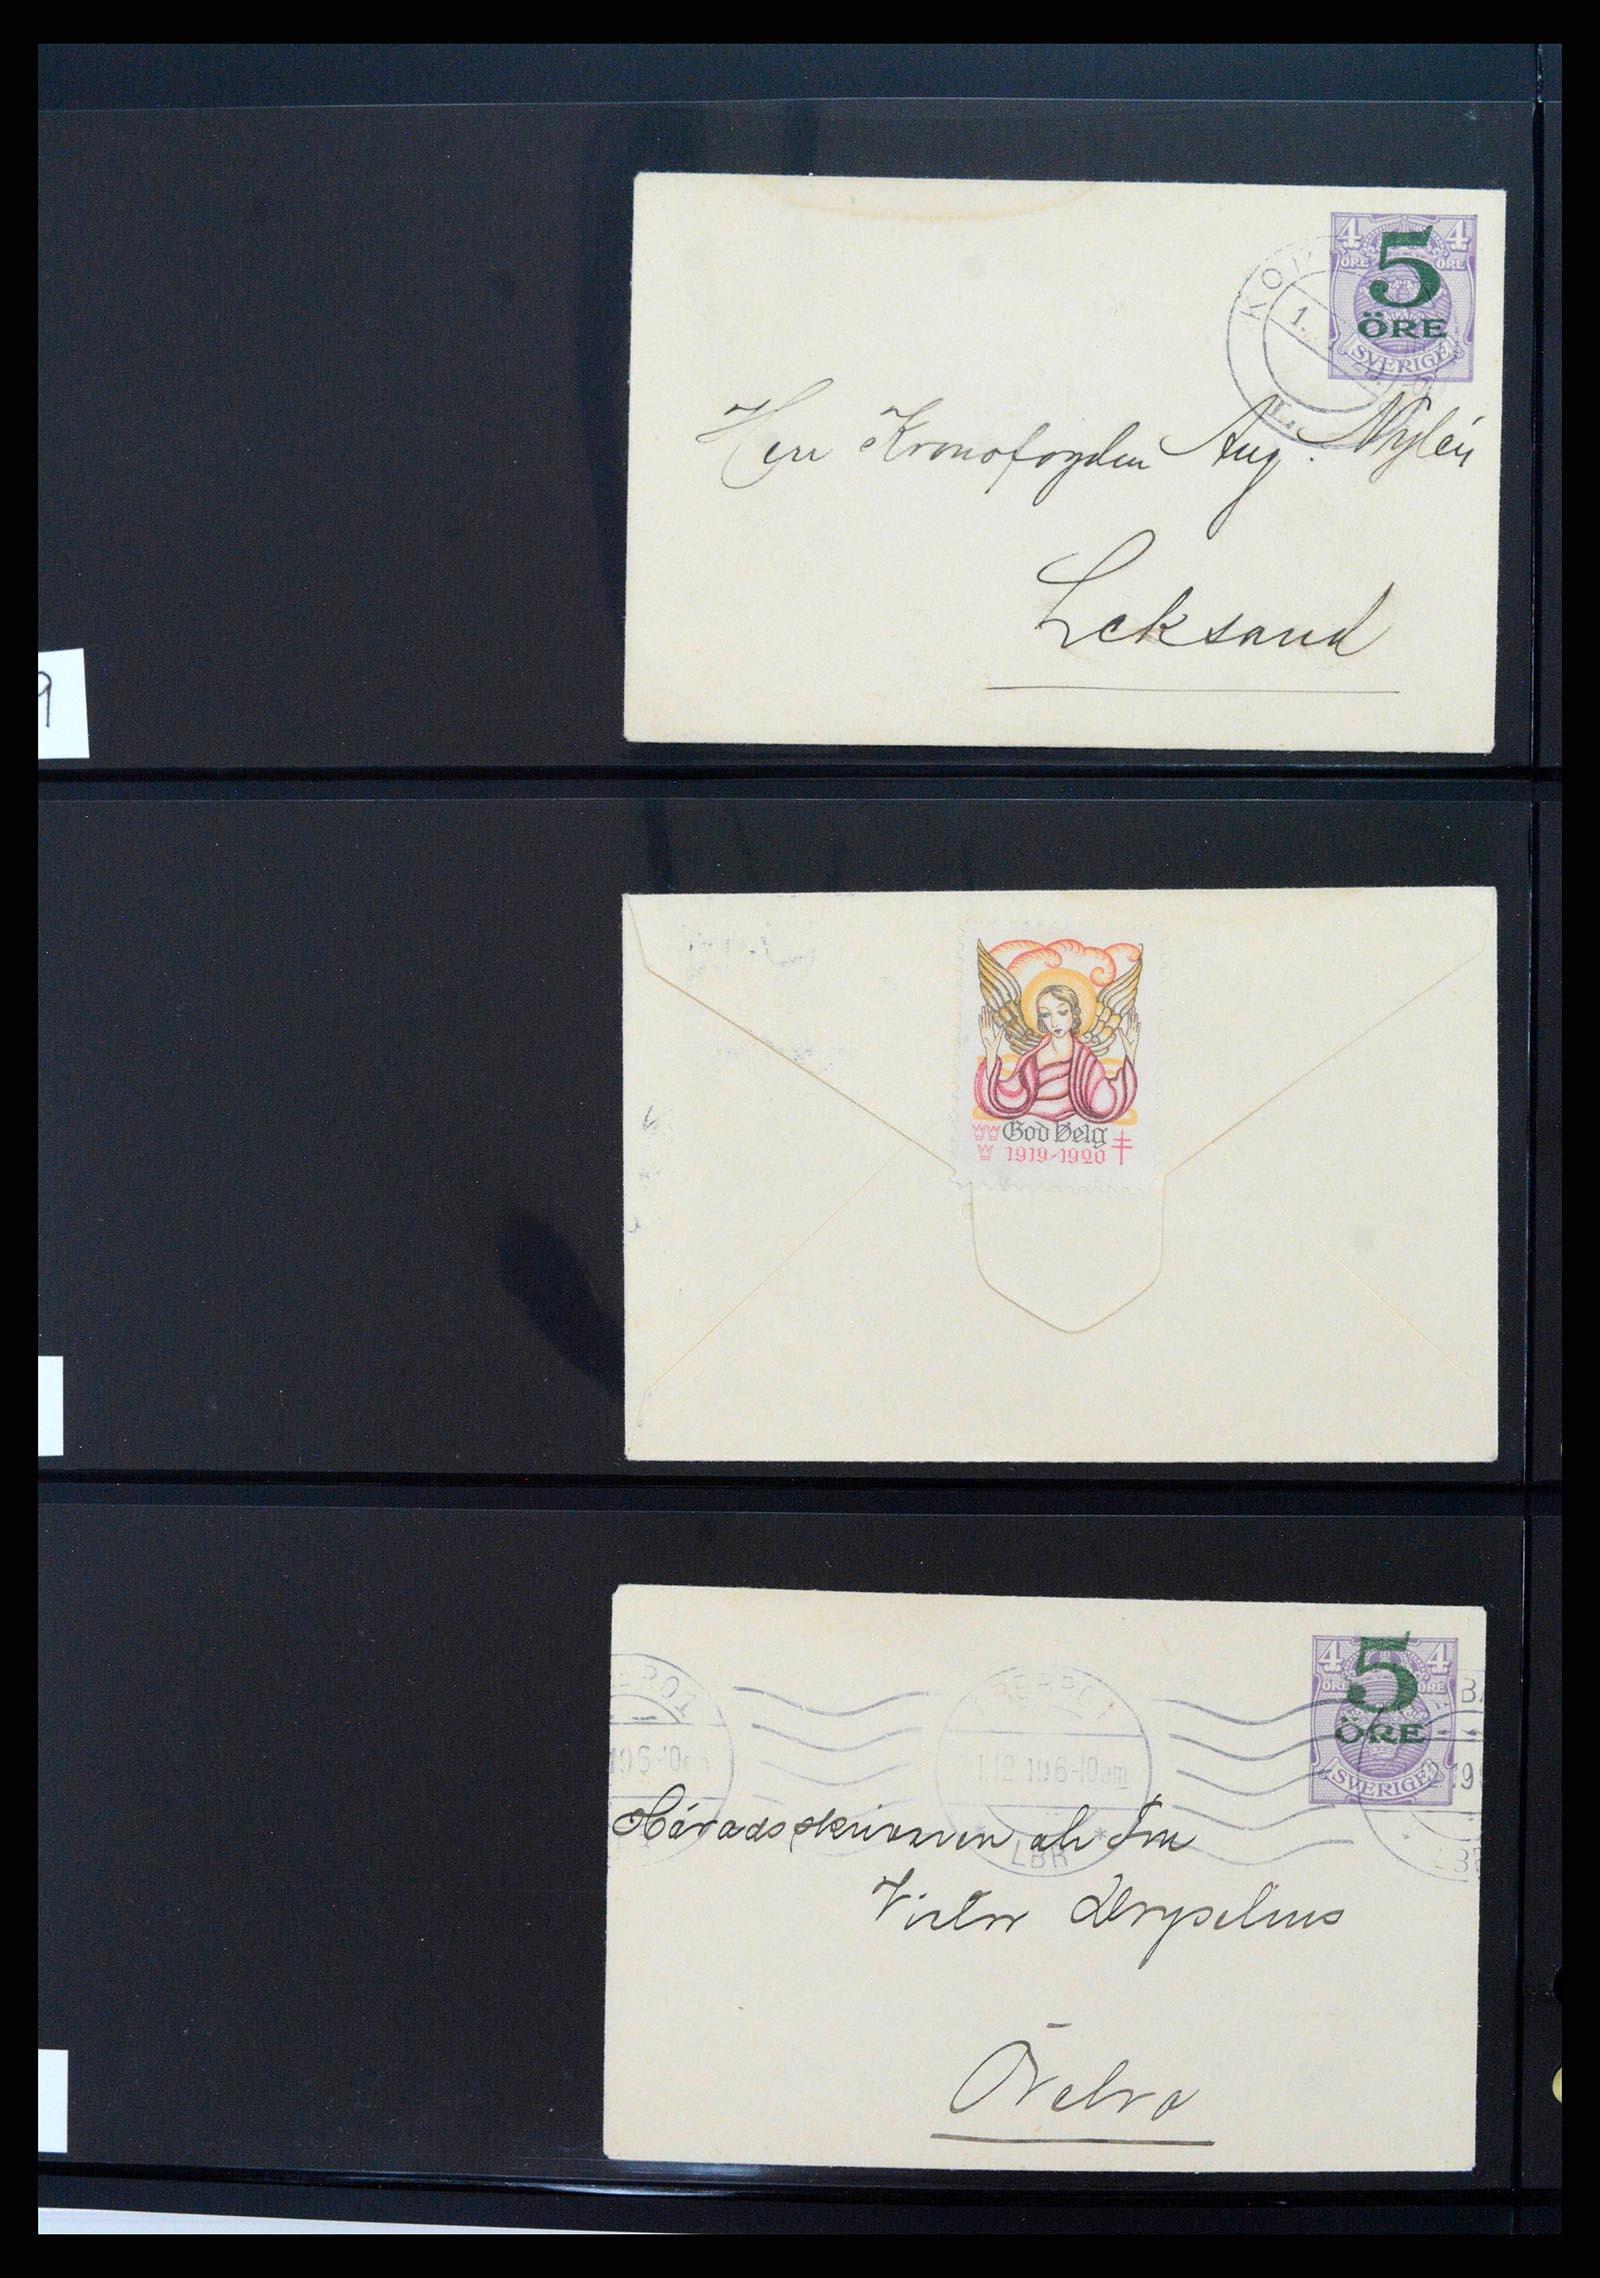 4 4
ÖRE ÖRE
5
ÖRE
SVERIGE
1.
Herr Kronofogden Aug. Nylén
Leksand
9
God Helg
1919-1920
4 4
ÖRE ÖRE
5
ÖRE
SVERIGE
1.12.19 6-10em
LBR
Häradsskrivaren och Fru
Örebro